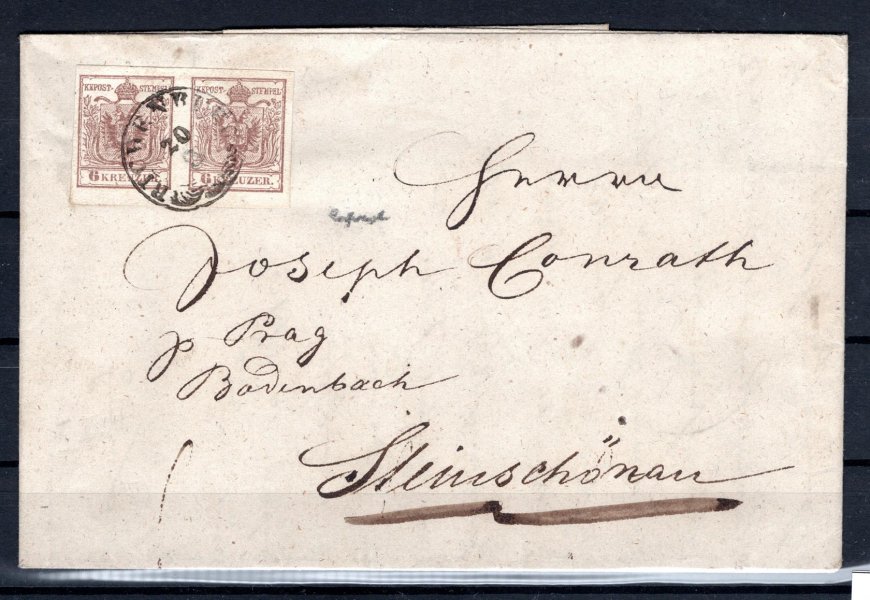 K.K.POST-STEMPEL K.K.POST-STEMPEL
6 KREUZER. 6 KREUZER.
20
Herrn
Joseph Conrath
p Prag
Bodenbach
Steinschönau